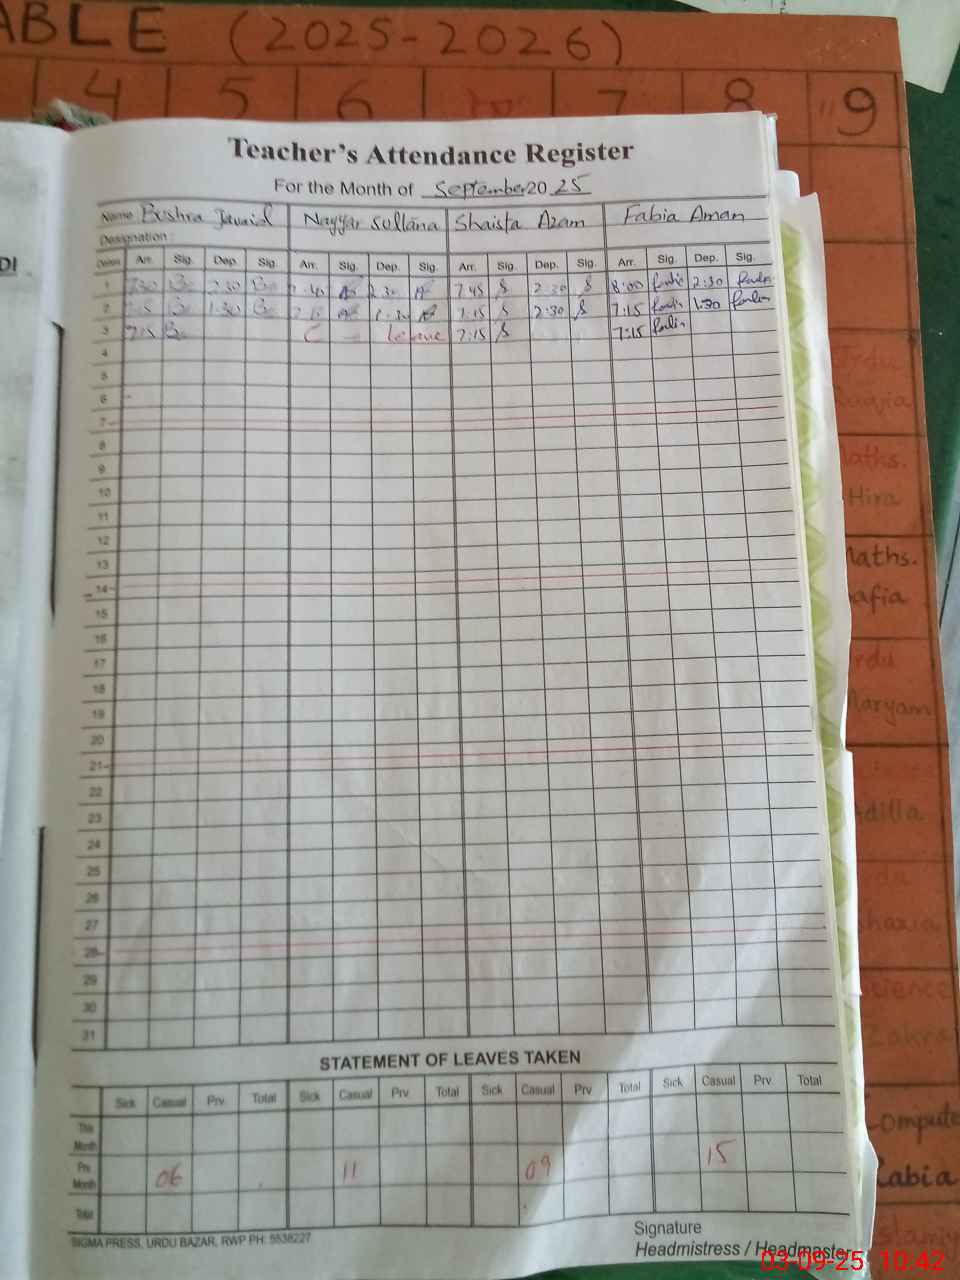 ABLE (2025-2026)
4 5 6 7 8 9
Teacher's Attendance Register
For the Month of September 2025
Name Bushra Javaid Nayyar Sultana Shaista Azam Fabia Aman
Designation:
DI
Dates Arr. Sig. Dep. Sig. Arr. Sig. Dep. Sig. Arr. Sig. Dep. Sig. Arr. Sig. Dep. Sig.
1 7:30 2:30 7:40 2:30 7:45 2:30 8:00 2:30
2 7:15 1:30 7:15 1:30 7:15 2:30 7:15 1:30
3 7:15 C — Leave 7:15 7:15
4
5
6
7
8
9
10
11
12
13
14
15
16
17
18
19
20
21
22
23
24
25
26
27
28
29
30
31
Urdu
Maths.
Hira
Maths.
afia
Urdu
Maryam
dilla
Shazia
Science
Zakra
Compute
Rabia
STATEMENT OF LEAVES TAKEN
Sick Casual Prv. Total Sick Casual Prv. Total Sick Casual Prv Total Sick Casual Prv. Total
This Month
Prv. Month 06 11 09 15
Total
SIGMA PRESS, URDU BAZAR, RWP PH: 5538227
Signature
Headmistress / Headmaster
03-09-25 10:42